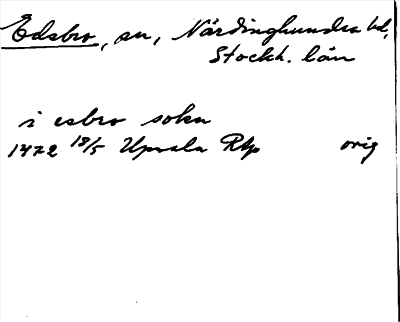 Edsbro, sn, Närdinghundra hd,
Stockh. län
i esbro sokn
1472 18/5 Upsala Rkp orig